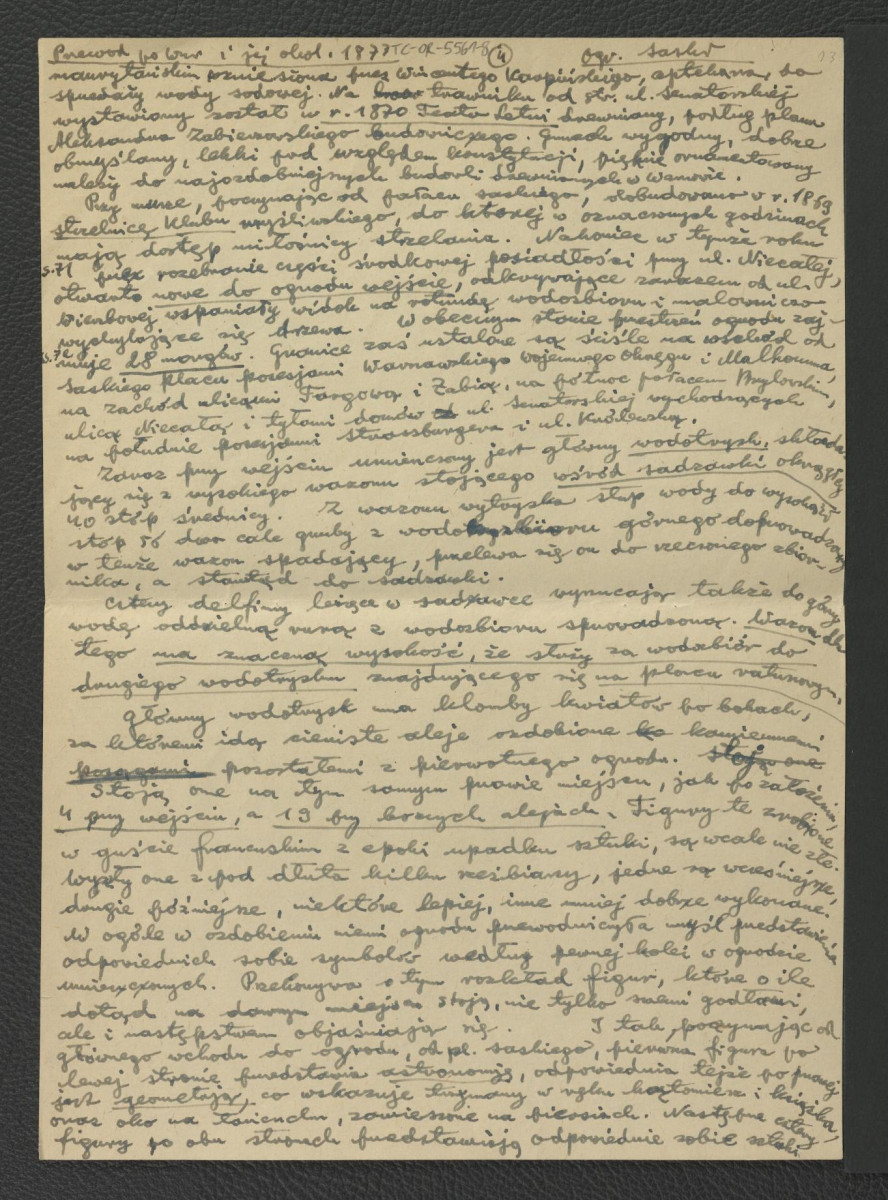 Przewod. po Warsz. i jej okol. 1877 TC-OR-5561-8 4 Ogr. Saski 13
maurytańskim przez Wincentego Karpińskiego, aptekarza, do
sprzedaży wody sodowej. Na trawniku od str. ul. Senatorskiej
wystawiony został w r. 1870 Teatr Letni drewniany, podług planu
Aleksandra Zabierzowskiego budowniczego. Gmach wygodny, dobrze
obmyślany, lekki pod względem konstytucji, pięknie ornamentowany
należy do najozdobniejszych budowli drewnianych w Warszawie.
Przy murze, poczynając od pałacu saskiego, dobudowano w r. 1869
strzelnicę Klubu myśliwskiego, do której w oznaczonych godzinach
mają dostęp miłośnicy strzelania. Nakoniec w tymże roku
s. 71 przez rozebranie części środkowej posiadłości przy ul. Niecałej,
otwarto nowe do ogrodu wejście, odkrywające zarazem od ul.
Wierzbowej wspaniały widok na rotundę wodozbioru i malowniczo
wychylające się drzewa. W obecnym stanie przestrzeń ogrodu zaj-
s. 72 muje 28 morgów. Granice zaś ustalone są ściśle na wschód od
Saskiego placu posesjami Warszawskiego Wojennego Okręgu i Malhomma,
na zachód ulicami Targową i Żabią, na północ pałacem Brylowskim,
ulicą Niecałą i tyłami domów ul. Senatorskiej wychodzących
na południe posesjami Strassburgera i ul. Królewską.
Zaraz przy wejściu umieszczony jest główny wodotrysk, składa-
jący się z wysokiego wazonu stojącego wśród sadzawki okrągłej
40 stóp średnicy. Z wazonu wytryska słup wody do wysokości
stóp 56 dwa cale gruby z wodozbioru górnego doprowadzany
w tenże wazon spadający, przelewa się on do rzeczonego zbior-
nika, a stamtąd do sadzawki.
Cztery delfiny leżące w sadzawce wyrzucają także do góry
wodę oddzielną rurą z wodozbioru sprowadzoną. Wazon dla
tego ma znaczną wysokość, że służy za wodozbiór do
drugiego wodotrysku znajdującego się na placu ratuszowym.
Główny wodotrysk ma klomby kwiatów po bokach,
za któremi idą cieniste aleje ozdobione kamiennemi
posągami pozostałemi z pierwotnego ogrodu. Stoją one
Stoją one na tym samym prawie miejscu, jak po założeniu,
4 przy wejściu, a 19 przy bocznych alejach. Figury te zrobione
w guście francuskim z epoki upadku sztuki, są wcale nie złe.
Wyszły one z pod dłuta kilku rzeźbiarzy, jedne są wcześniejsze,
drugie późniejsze, niektóre lepiej, inne mniej dobrze wykonane.
W ogóle w ozdobieniu niemi ogrodu przewodniczyła myśl przedstawienia
odpowiednich sobie symbolów według pewnej kolei w ogrodzie
umieszczonych. Przekonywa o tym rozkład figur, które o ile
dotąd na dawnym miejscu stoją, nie tylko swemi godłami,
ale i następstwem objaśniają się. I tak, poczynając od
głównego wchodu do ogrodu, od pl. Saskiego, pierwsza figura po
lewej stronie przedstawia astronomję, odpowiednia tejże po prawej
jest geometrja, co wskazuje trzymany w ręku kątomierz i książka,
oraz oko na łańcuchu, zawieszone na piersiach. Następne cztery
figury po obu stronach przedstawiają odpowiednie sobie sztuki